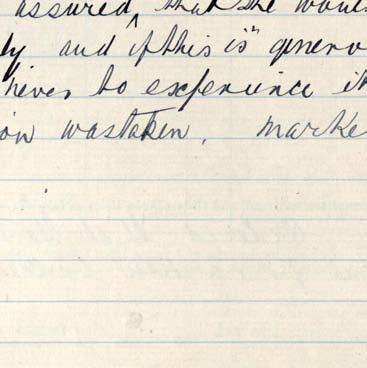 assured, that she would
ly and if this is" genero
never to experience it
on was taken. Marke